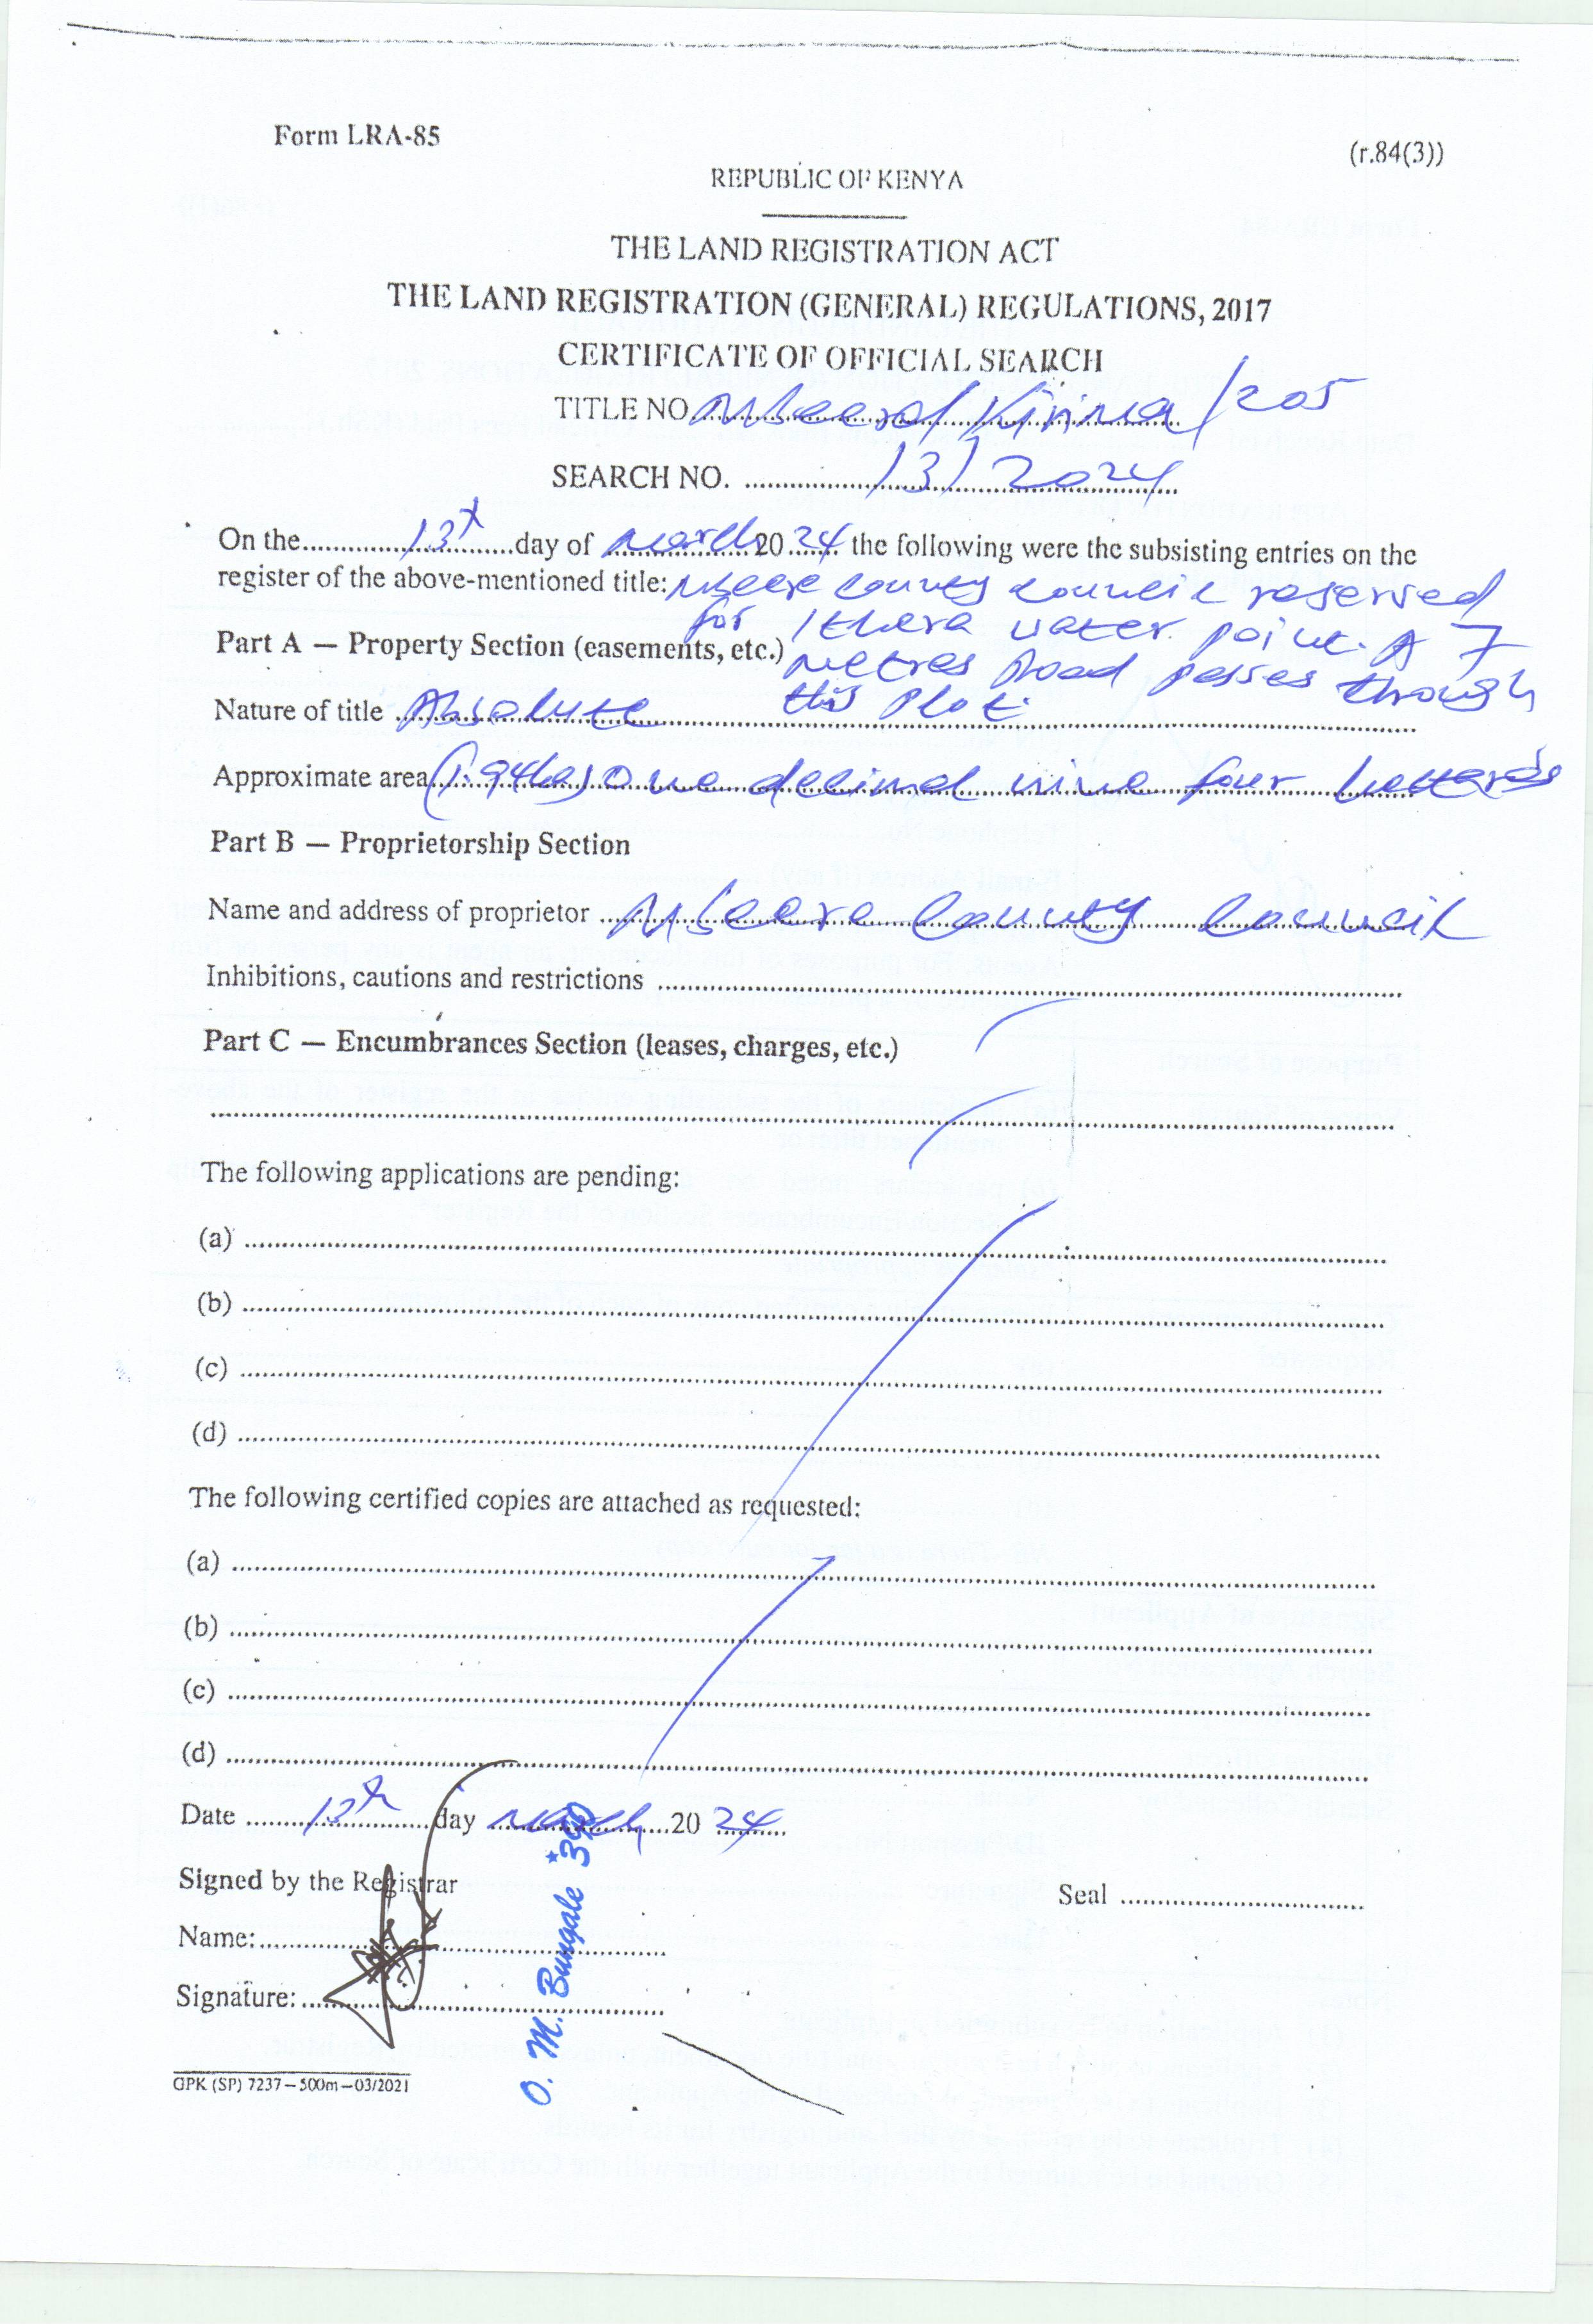 Form LRA-85
(r.84(3))
REPUBLIC OF KENYA
THE LAND REGISTRATION ACT
THE LAND REGISTRATION (GENERAL) REGULATIONS, 2017
CERTIFICATE OF OFFICIAL SEARCH
TITLE NO. Kirima/205
SEARCH NO. 13/2024
On the 13th day of March 2024 the following were the subsisting entries on the
register of the above-mentioned title: Mbeere County Council reserved
for Ithera water point. A 7
Part A — Property Section (easements, etc.) metres Road passes through
this Plot.
Nature of title Absolute
Approximate area (1.94ha) One decimal nine four
Part B — Proprietorship Section
Name and address of proprietor Mbeere County Council
Inhibitions, cautions and restrictions
Part C — Encumbrances Section (leases, charges, etc.)
The following applications are pending:
(a)
(b)
(c)
(d)
The following certified copies are attached as requested:
(a)
(b)
(c)
(d)
Date 13th day March 2024
Signed by the Registrar
Seal
Name:
Signature:
O. M. Bungale *390
GPK (SP) 7237—500m—03/2021